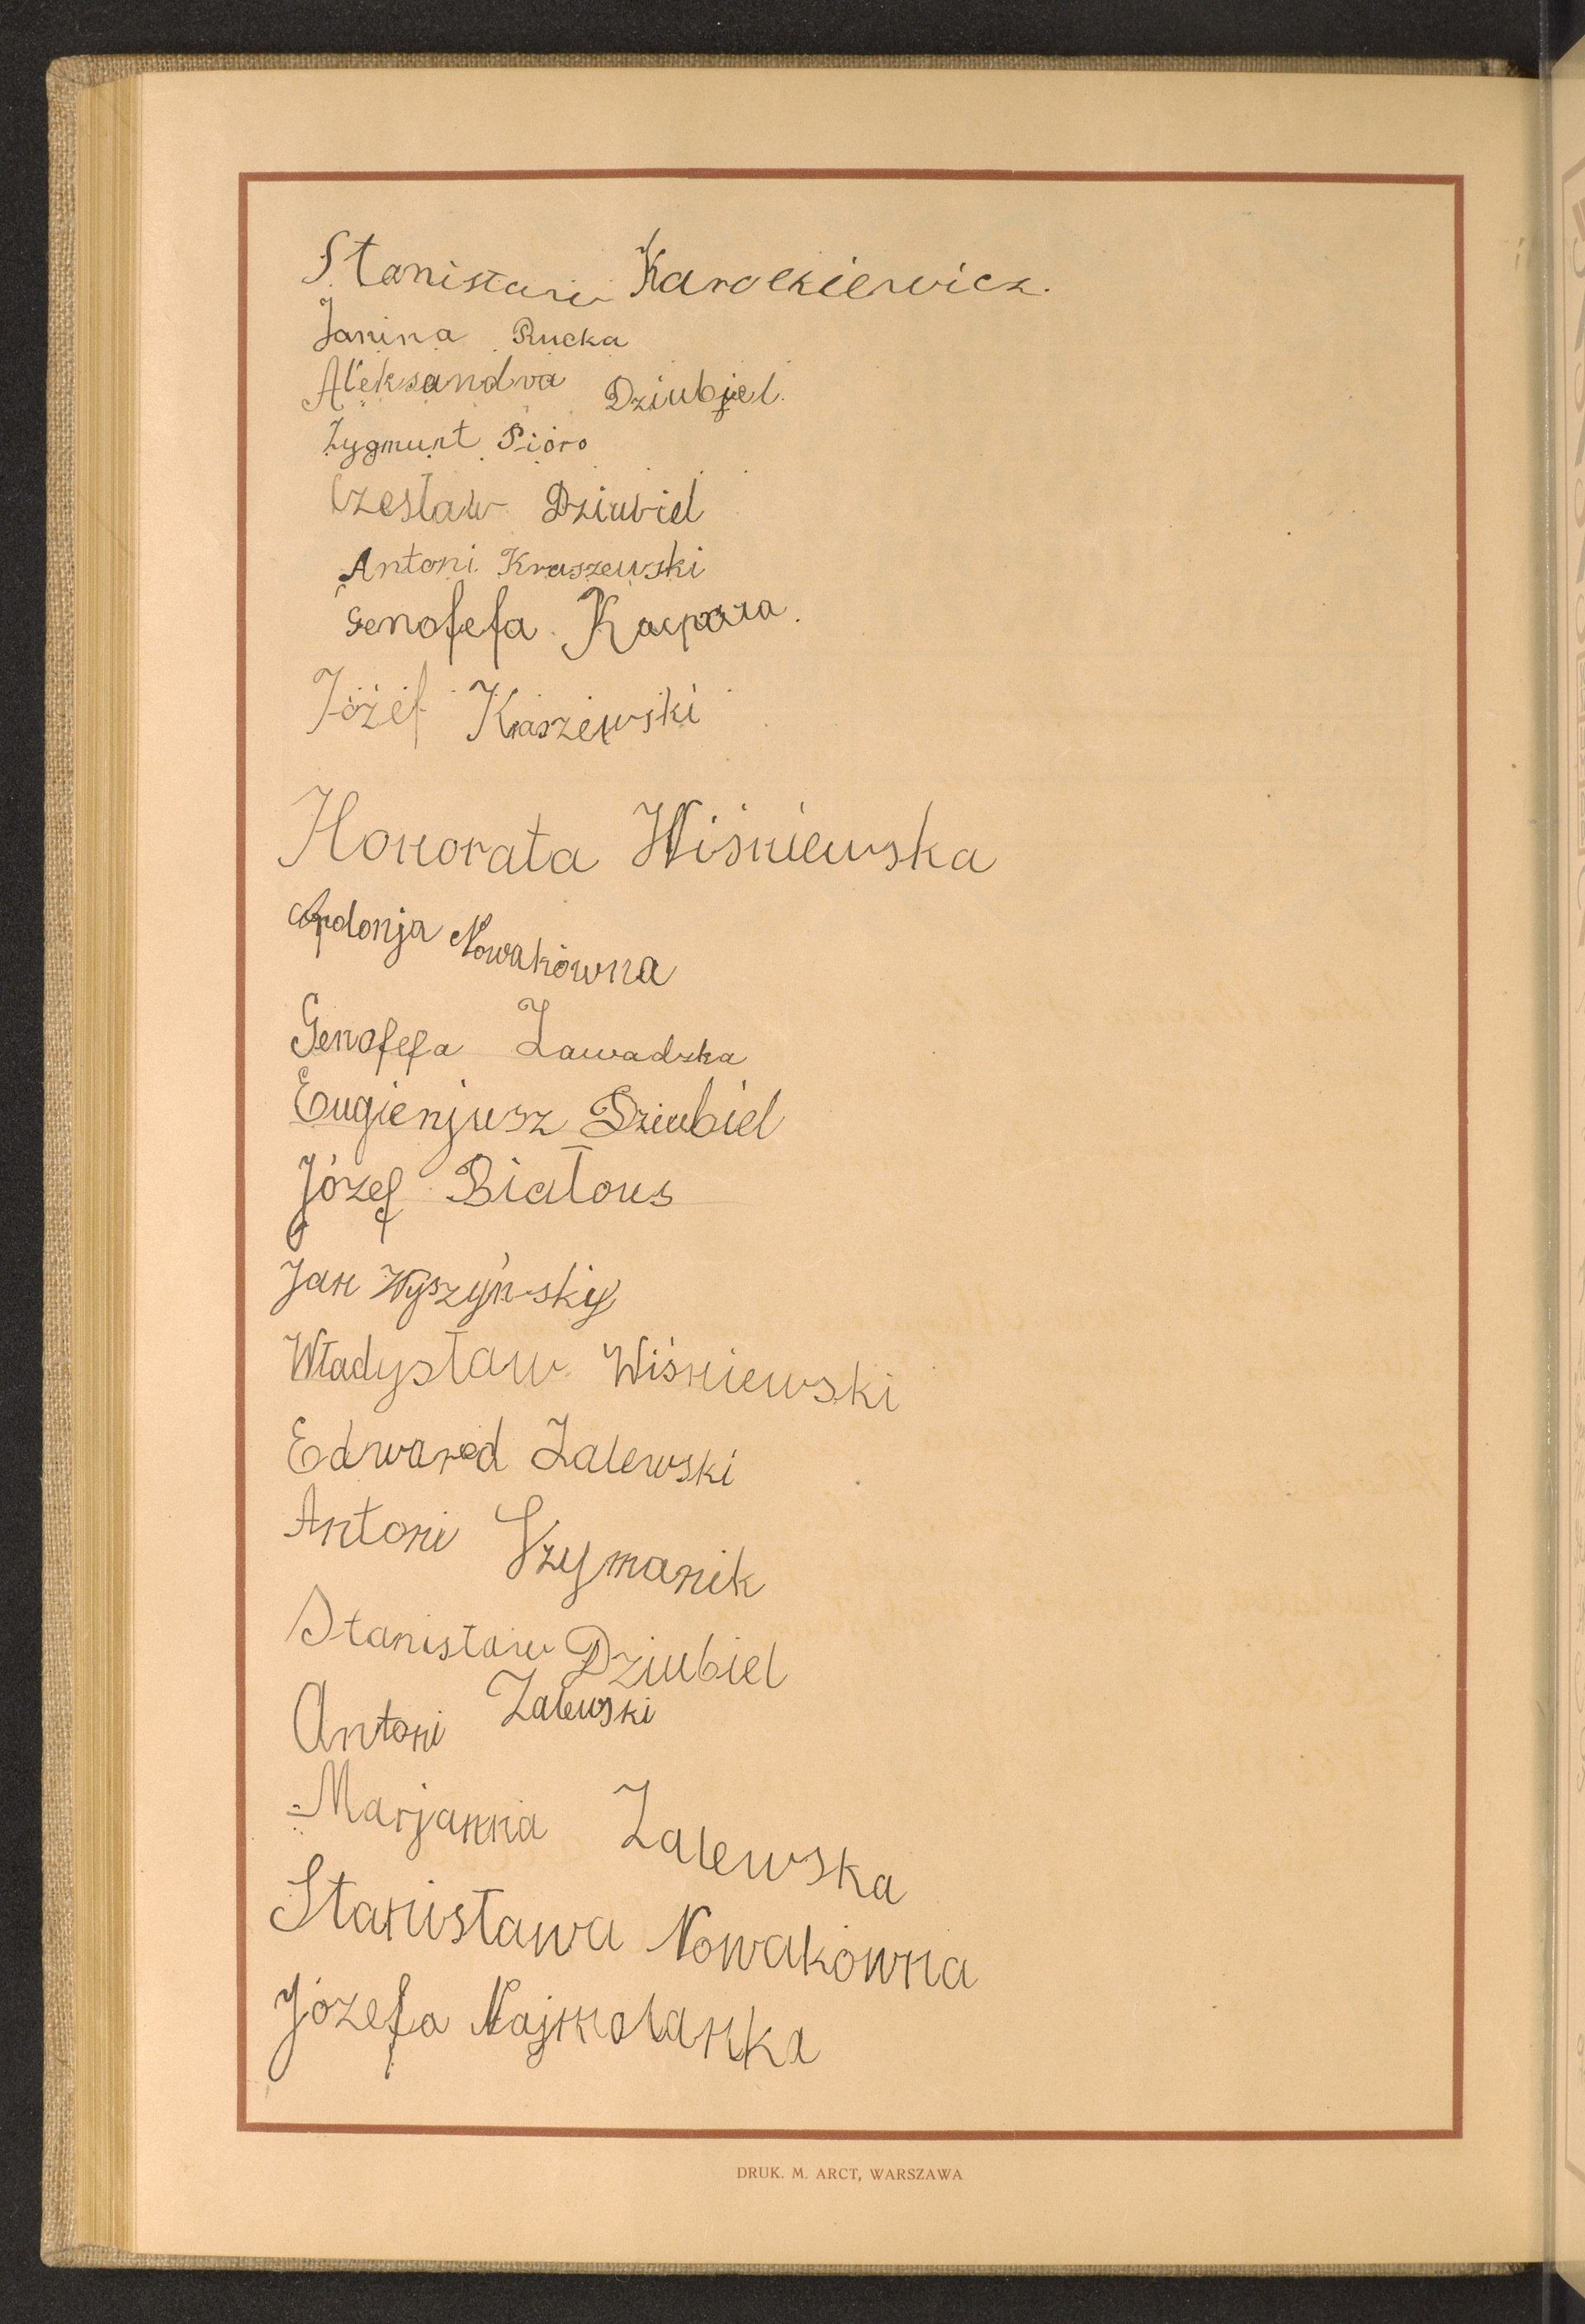 Stanisław Karolkiewicz.
Janina Rucka
Aleksandra Dziubiel.
Zygmunt Pióro
Czesław Dziubiel
Antoni Kraszewski
Genofefa
Józef Kraszewski
Honorata Wiśniewska
Apolonja Nowakówna
Genofefa Zawadzka
Eugienjusz Dziubiel
Józef Białous
Jan Wyszyńskiy
Władysław Wiśniewski
Edward Zalewski
Antoni Szymanik
Stanisław Dziubiel
Antoni Zalewski
Marjanna Zalewska
Stanisława Nowakówna
Józefa Najmolanka
DRUK. M. ARCT, WARSZAWA